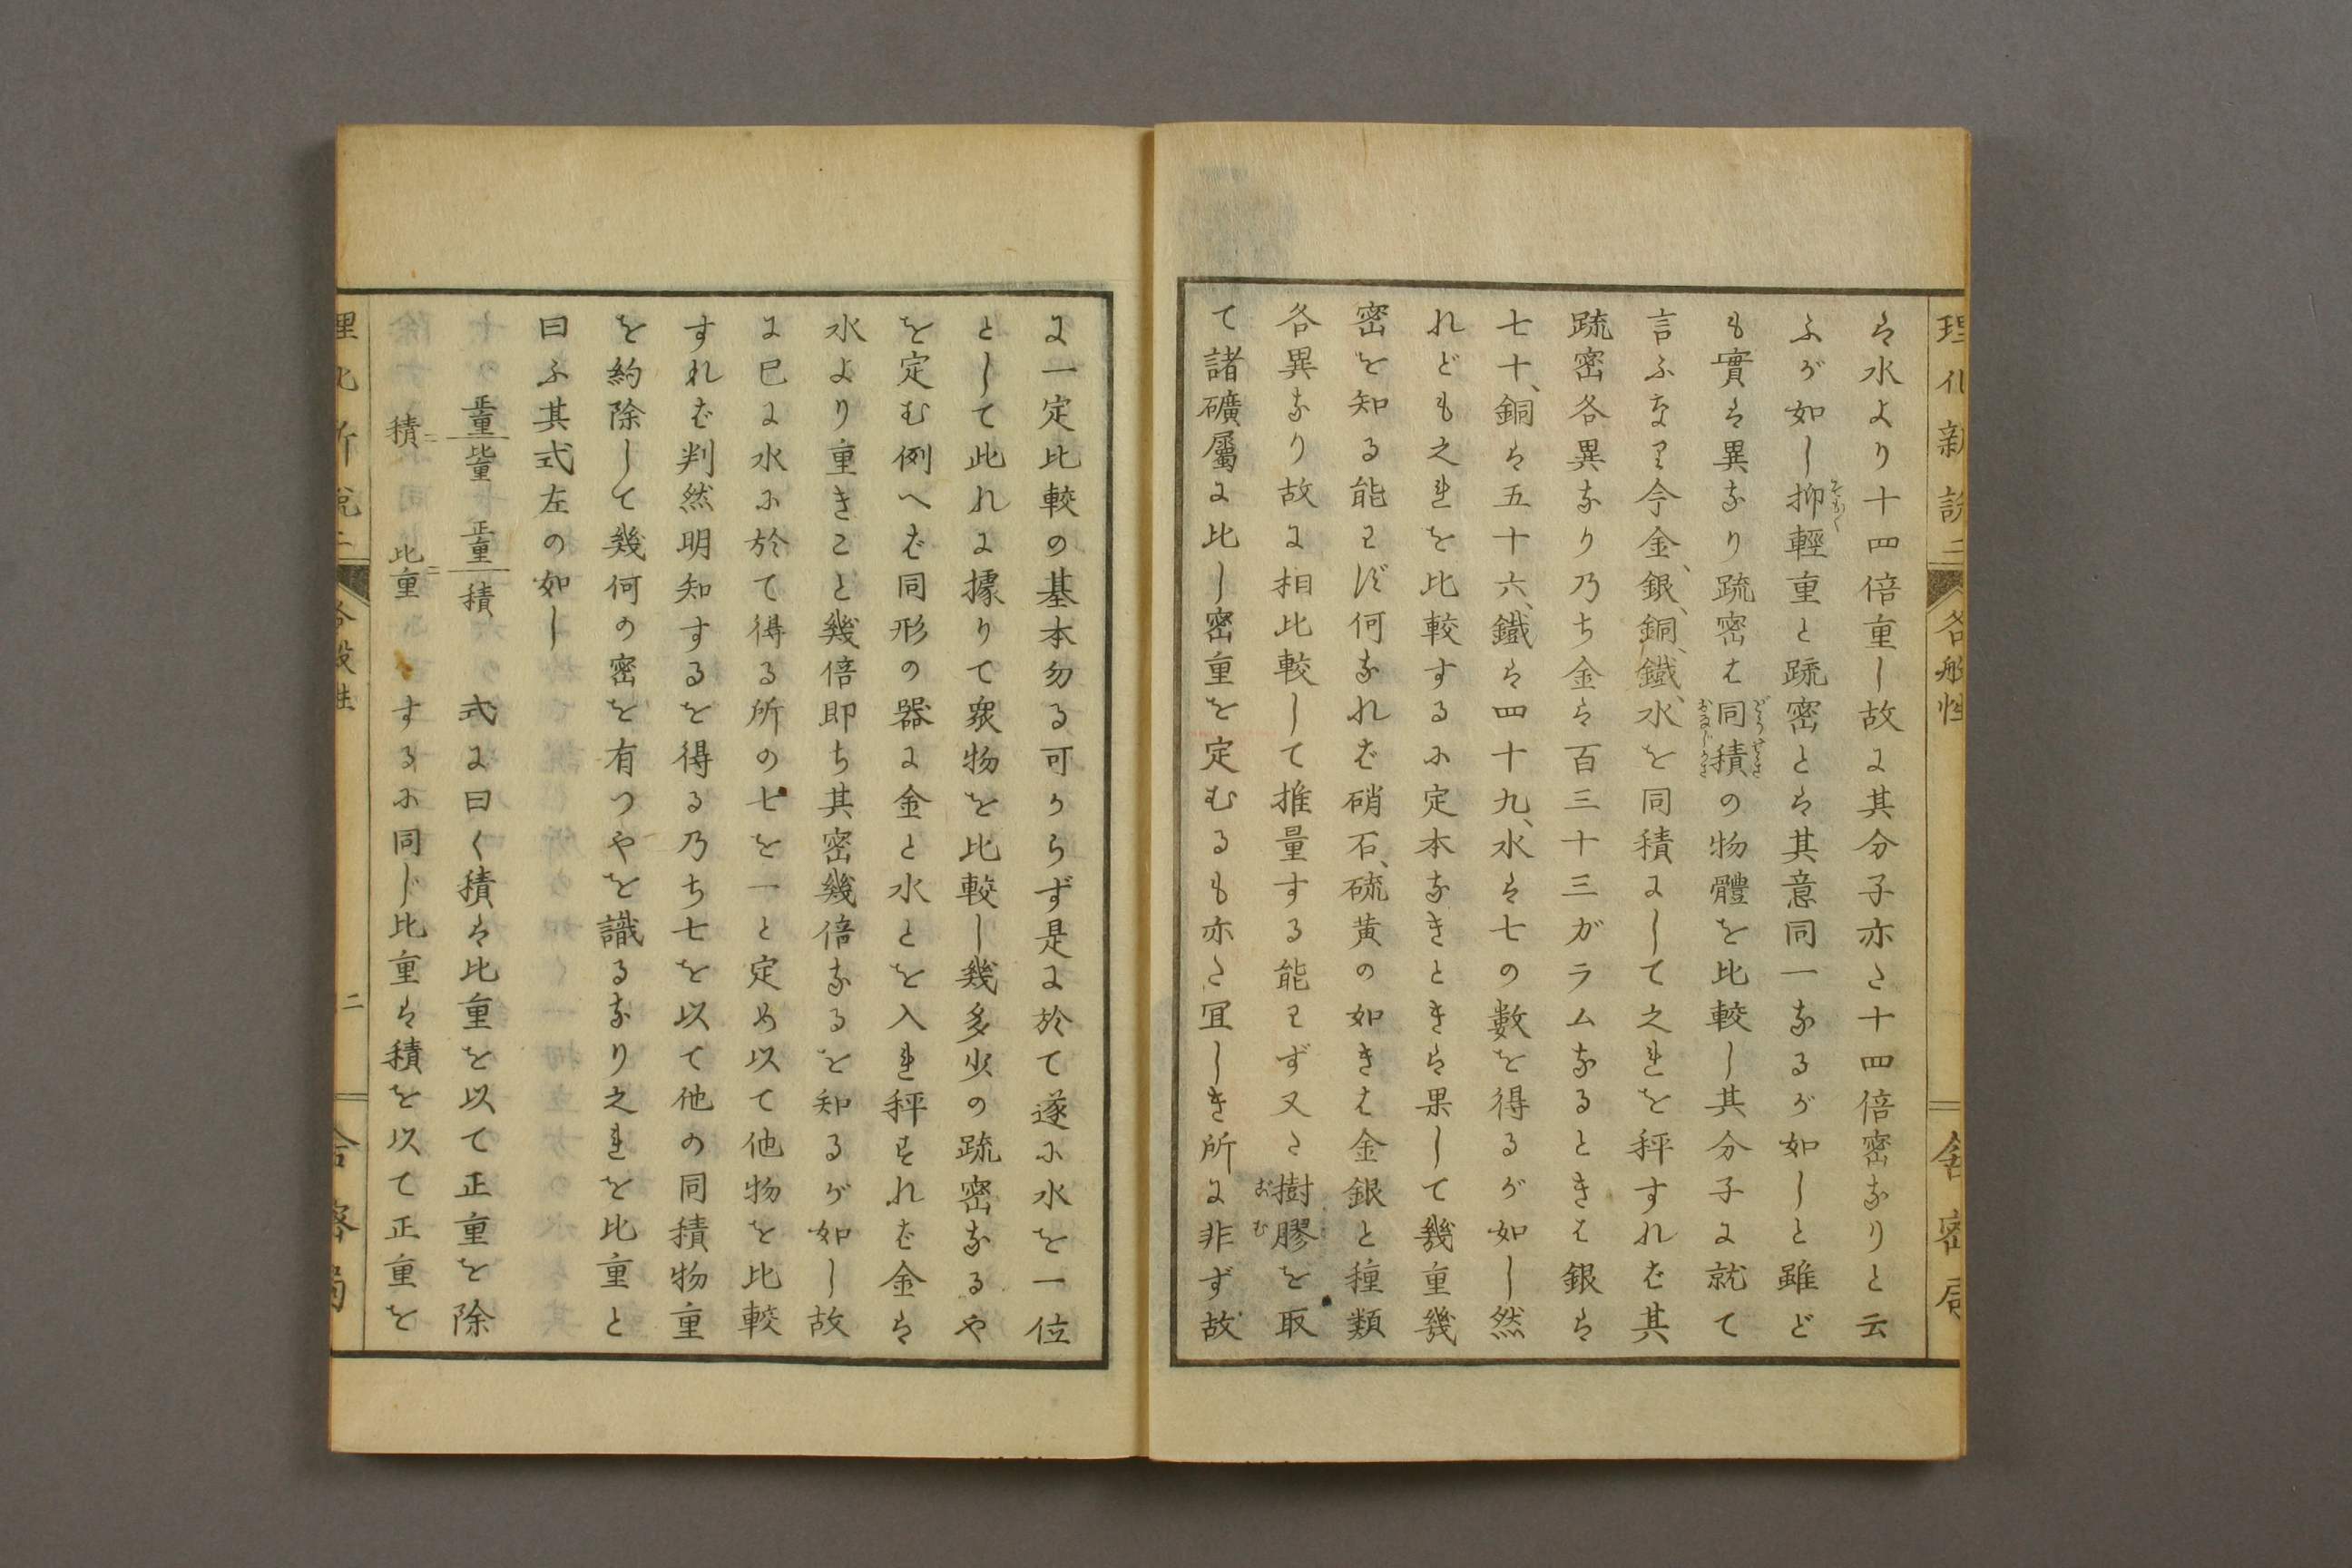 理化新説二 各般性 舎密局
は水より十四倍重し故に其分子亦た十四倍密なりと云
ふが如し抑輕重と疏密とは其意同一なるが如しと雖ど
も實は異なり疏密は同積の物體を比較し其分子に就て
言ふなり今金、銀、銅、鐵、水を同積にして之れを秤すれば其
疏密各異なり乃ち金は百三十三ガラムなるときは銀は
七十、銅は五十六、鐵は四十九、水は七の數を得るが如し然
れども之れを比較するに定本なきときは果して幾重幾
密を知る能はず何なれば硝石、硫黄の如きは金銀と種類
各異なり故に相比較して推量する能はず又た樹膠を取
て諸礦屬に比し密重を定むるも亦た冝しき所に非ず故
に一定比較の基本勿る可からず是に於て遂に水を一位
として此れに據りて衆物を比較し幾多少の疏密なるや
を定む例へば同形の器に金と水とを入れ秤すれば金は
水より重きこと幾倍即ち其密幾倍なるを知るが如し故
に巳に水に於て得る所の七を一と定め以て他物を比較
すれば判然明知するを得る乃ち七を以て他の同積物重
を約除して幾何の密を有つやを識るなり之れを比重と
曰ふ其式左の如し
正重 比重 正重 積 式に曰く積は比重を以て正重を除
積 比重 するに同じ比重は積を以て正重を
理化新説二 各般性 二 舎密局